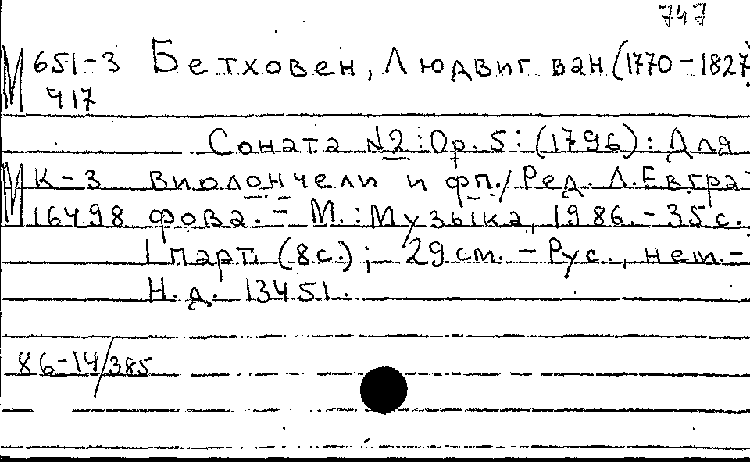 747
М 651-3 Бетховен, Людвиг ван (1770-1827
917
Соната №2: Ор. 5: (1796): Для
М К-3 виолончели и фп./Ред. Л. Евгра-
16498 фова. - М.: Музыка, 1986. - 35 с.
1 парт. (8 с.); 29 см. - Рус., нем. -
Н.д. 13451.
86-14/385